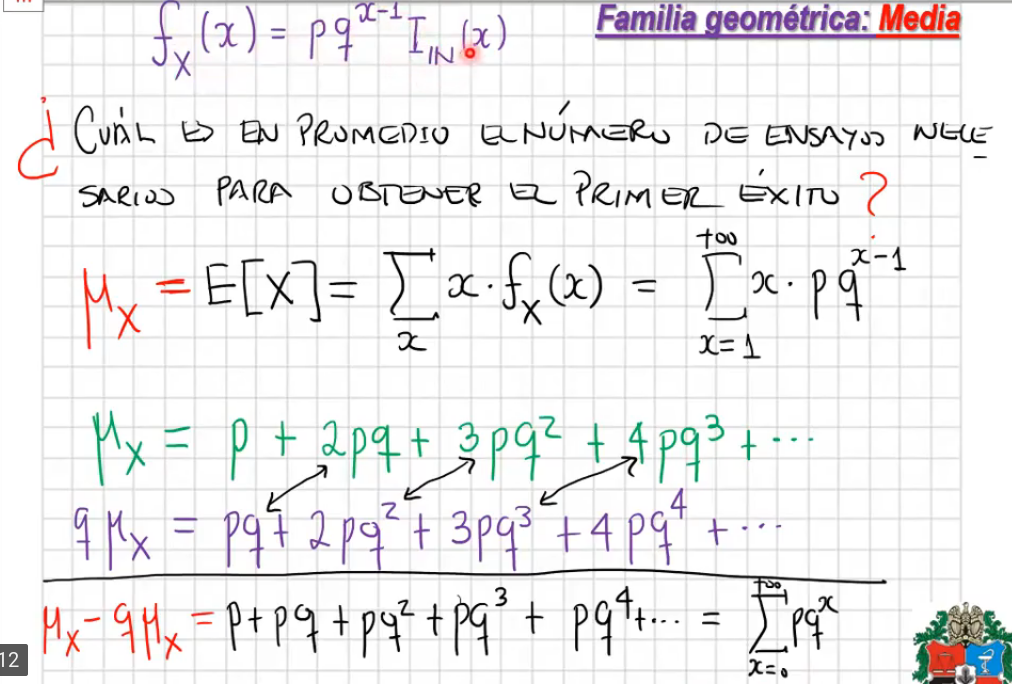 f_X(x) = pq^{x-1} I_{IN}(x)
Familia geométrica: Media
¿CUÁL ES EN PROMEDIO EL NÚMERO DE ENSAYOS NECE
SARIOS PARA OBTENER EL PRIMER ÉXITO?
μ_X = E[X] = Σ_x x·f_X(x) = Σ_{x=1}^{+∞} x·pq^{x-1}
μ_X = p + 2pq + 3pq² + 4pq³ + ...
qμ_X = pq + 2pq² + 3pq³ + 4pq⁴ + ...
μ_X - qμ_X = p + pq + pq² + pq³ + pq⁴ + ... = Σ_{x=0}^{+∞} pq^x
12